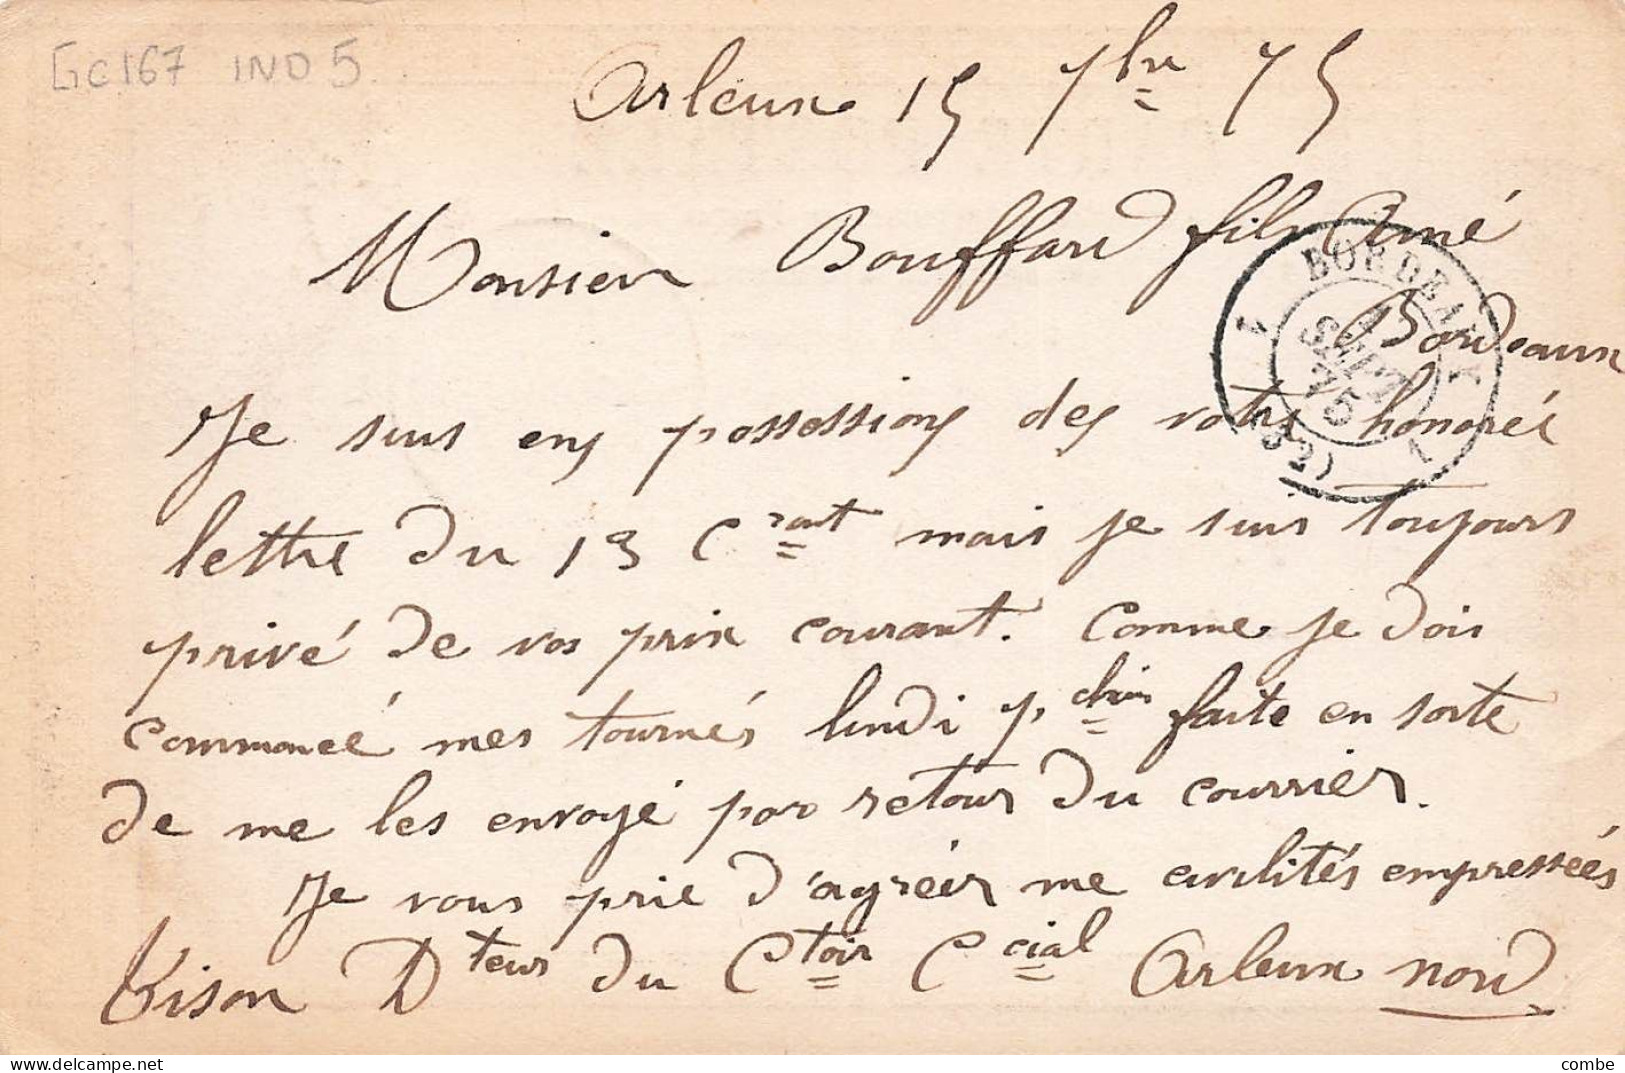 GC167 IND 5
Arleux 15 7bre 75
Monsieur Bouffard fils Ainé
Bordeaux
BORDEAUX
SEPT
75
(32)
Je suis en possession des votre honorée
lettre du 13 Crant mais je suis toujours
privé de vos prix courant. Comme je dois
commencé mes tournés lundi pchain faite en sorte
de me les envoyé par retour du courrier.
Je vous prie d'agréér me civilités empresseés
Kison Dteur du Ctoir Ccial Arleux Nord
combe